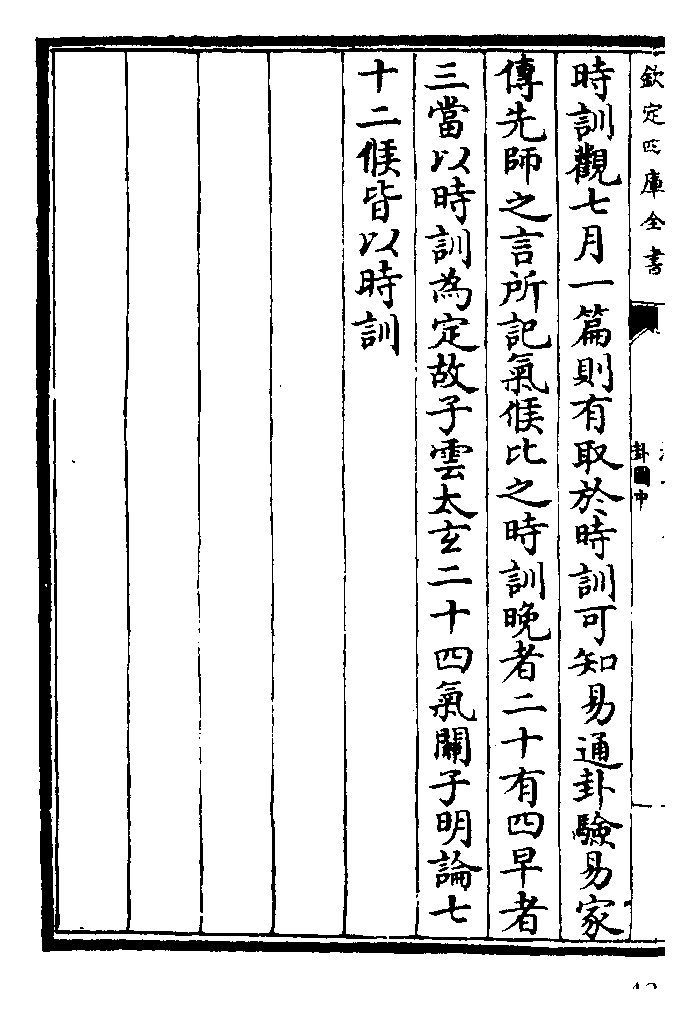 欽定四庫全書
卦圖中
時訓觀七月一篇則有取於時訓可知易通卦驗易家
傳先師之言所記氣候比之時訓晚者二十有四早者
三當以時訓為定故子雲太玄二十四氣關子明論七
十二候皆以時訓